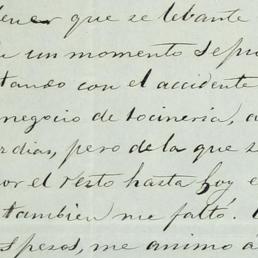 ener que se lebante
un momento sepa
tando con el accidente
negocio de tocineria, a
dias, pero de la que s
por el resto hasta hoy e
tambien me faltó.
spesos, me animo á